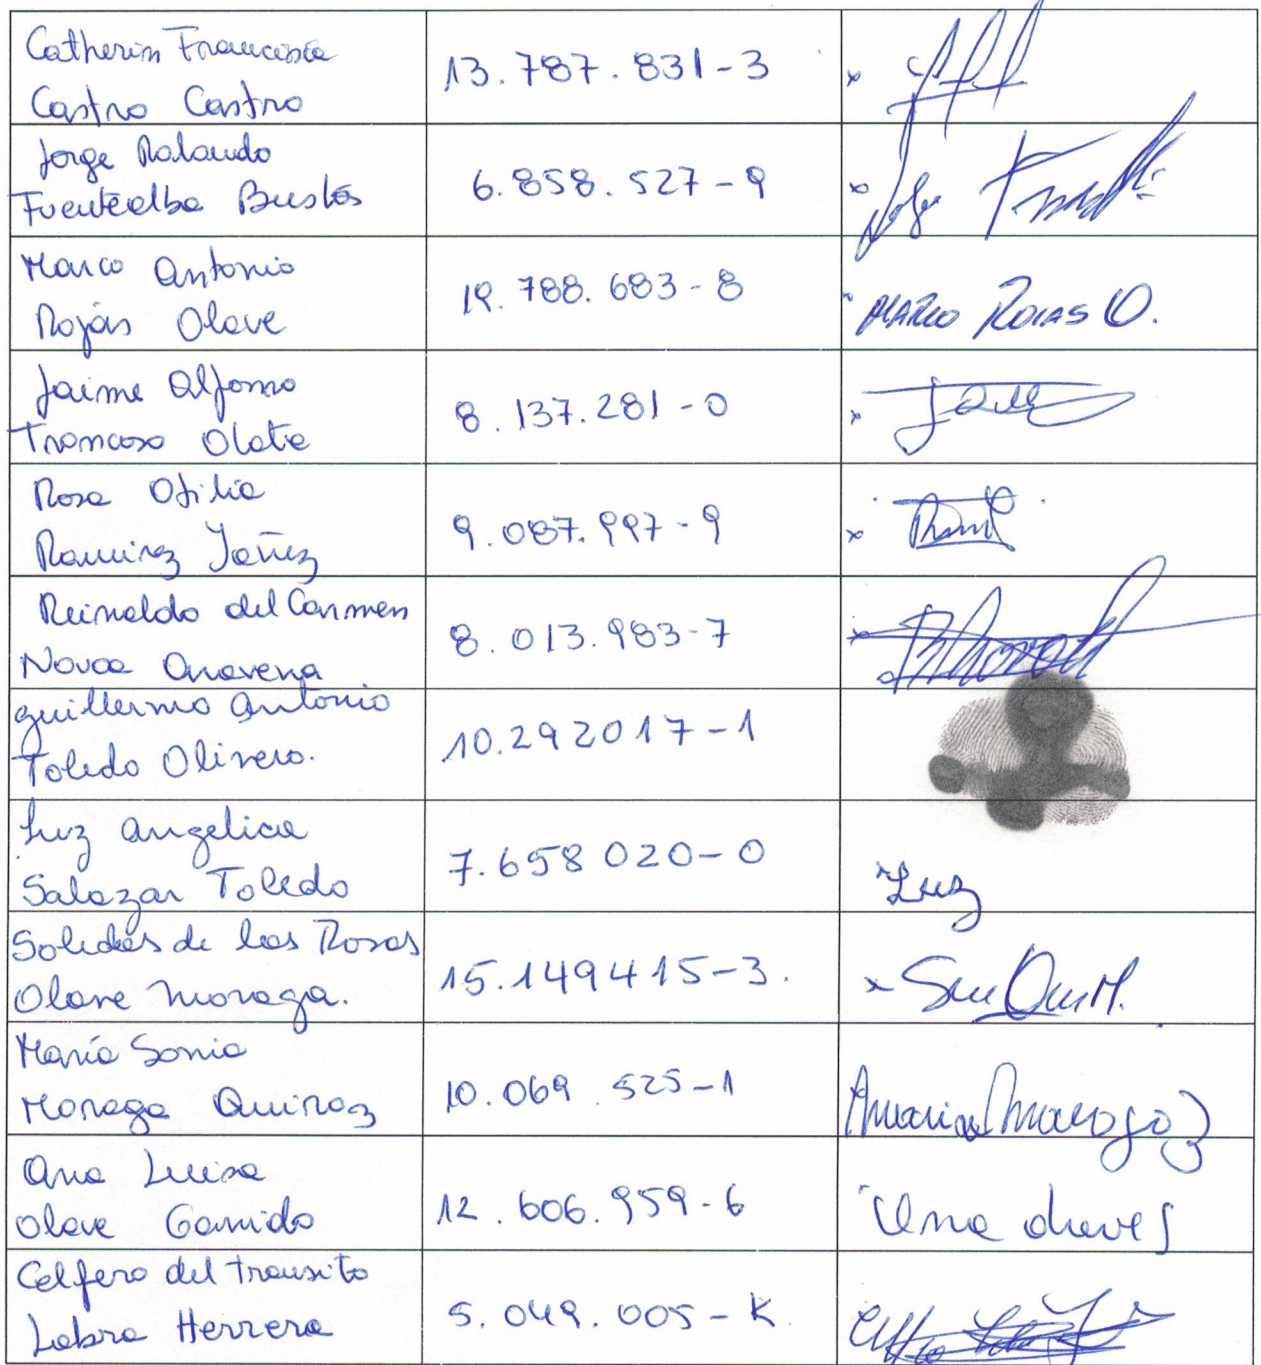 Catherin Francisca
Castro Castro
13.787.831-3
Jorge Rolando
Fuentealba Bustos
6.858.527-9
Marco Antonio
Rojas Olave
19.788.683-8
MARCO ROJAS O.
Jaime Alfonso
Troncoso Olate
8.137.281-0
Rosa Otilia
Ramirez Jañez
9.087.997-9
Reinaldo del Carmen
Novoa Aravena
8.013.983-7
Guillermo Antonio
Toledo Olivero.
10.292017-1
Luz Angelica
Salazar Toledo
7.658020-0
Luz
Soledad de las Rosas
Olave Moraga.
15.149415-3.
María Sonia
Moraga Quiroz
10.069.525-1
Maria Moraga
Ana Luisa
Olave Garrido
12.606.959-6
Ana
Celfero del transito
Labra Herrera
5.049.005-K